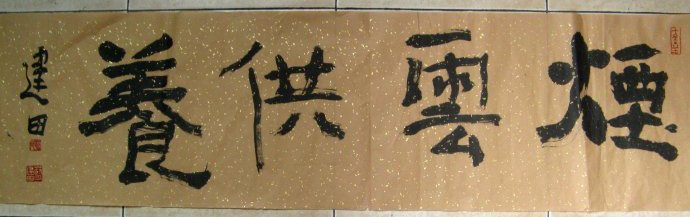 煙雲供養
建田